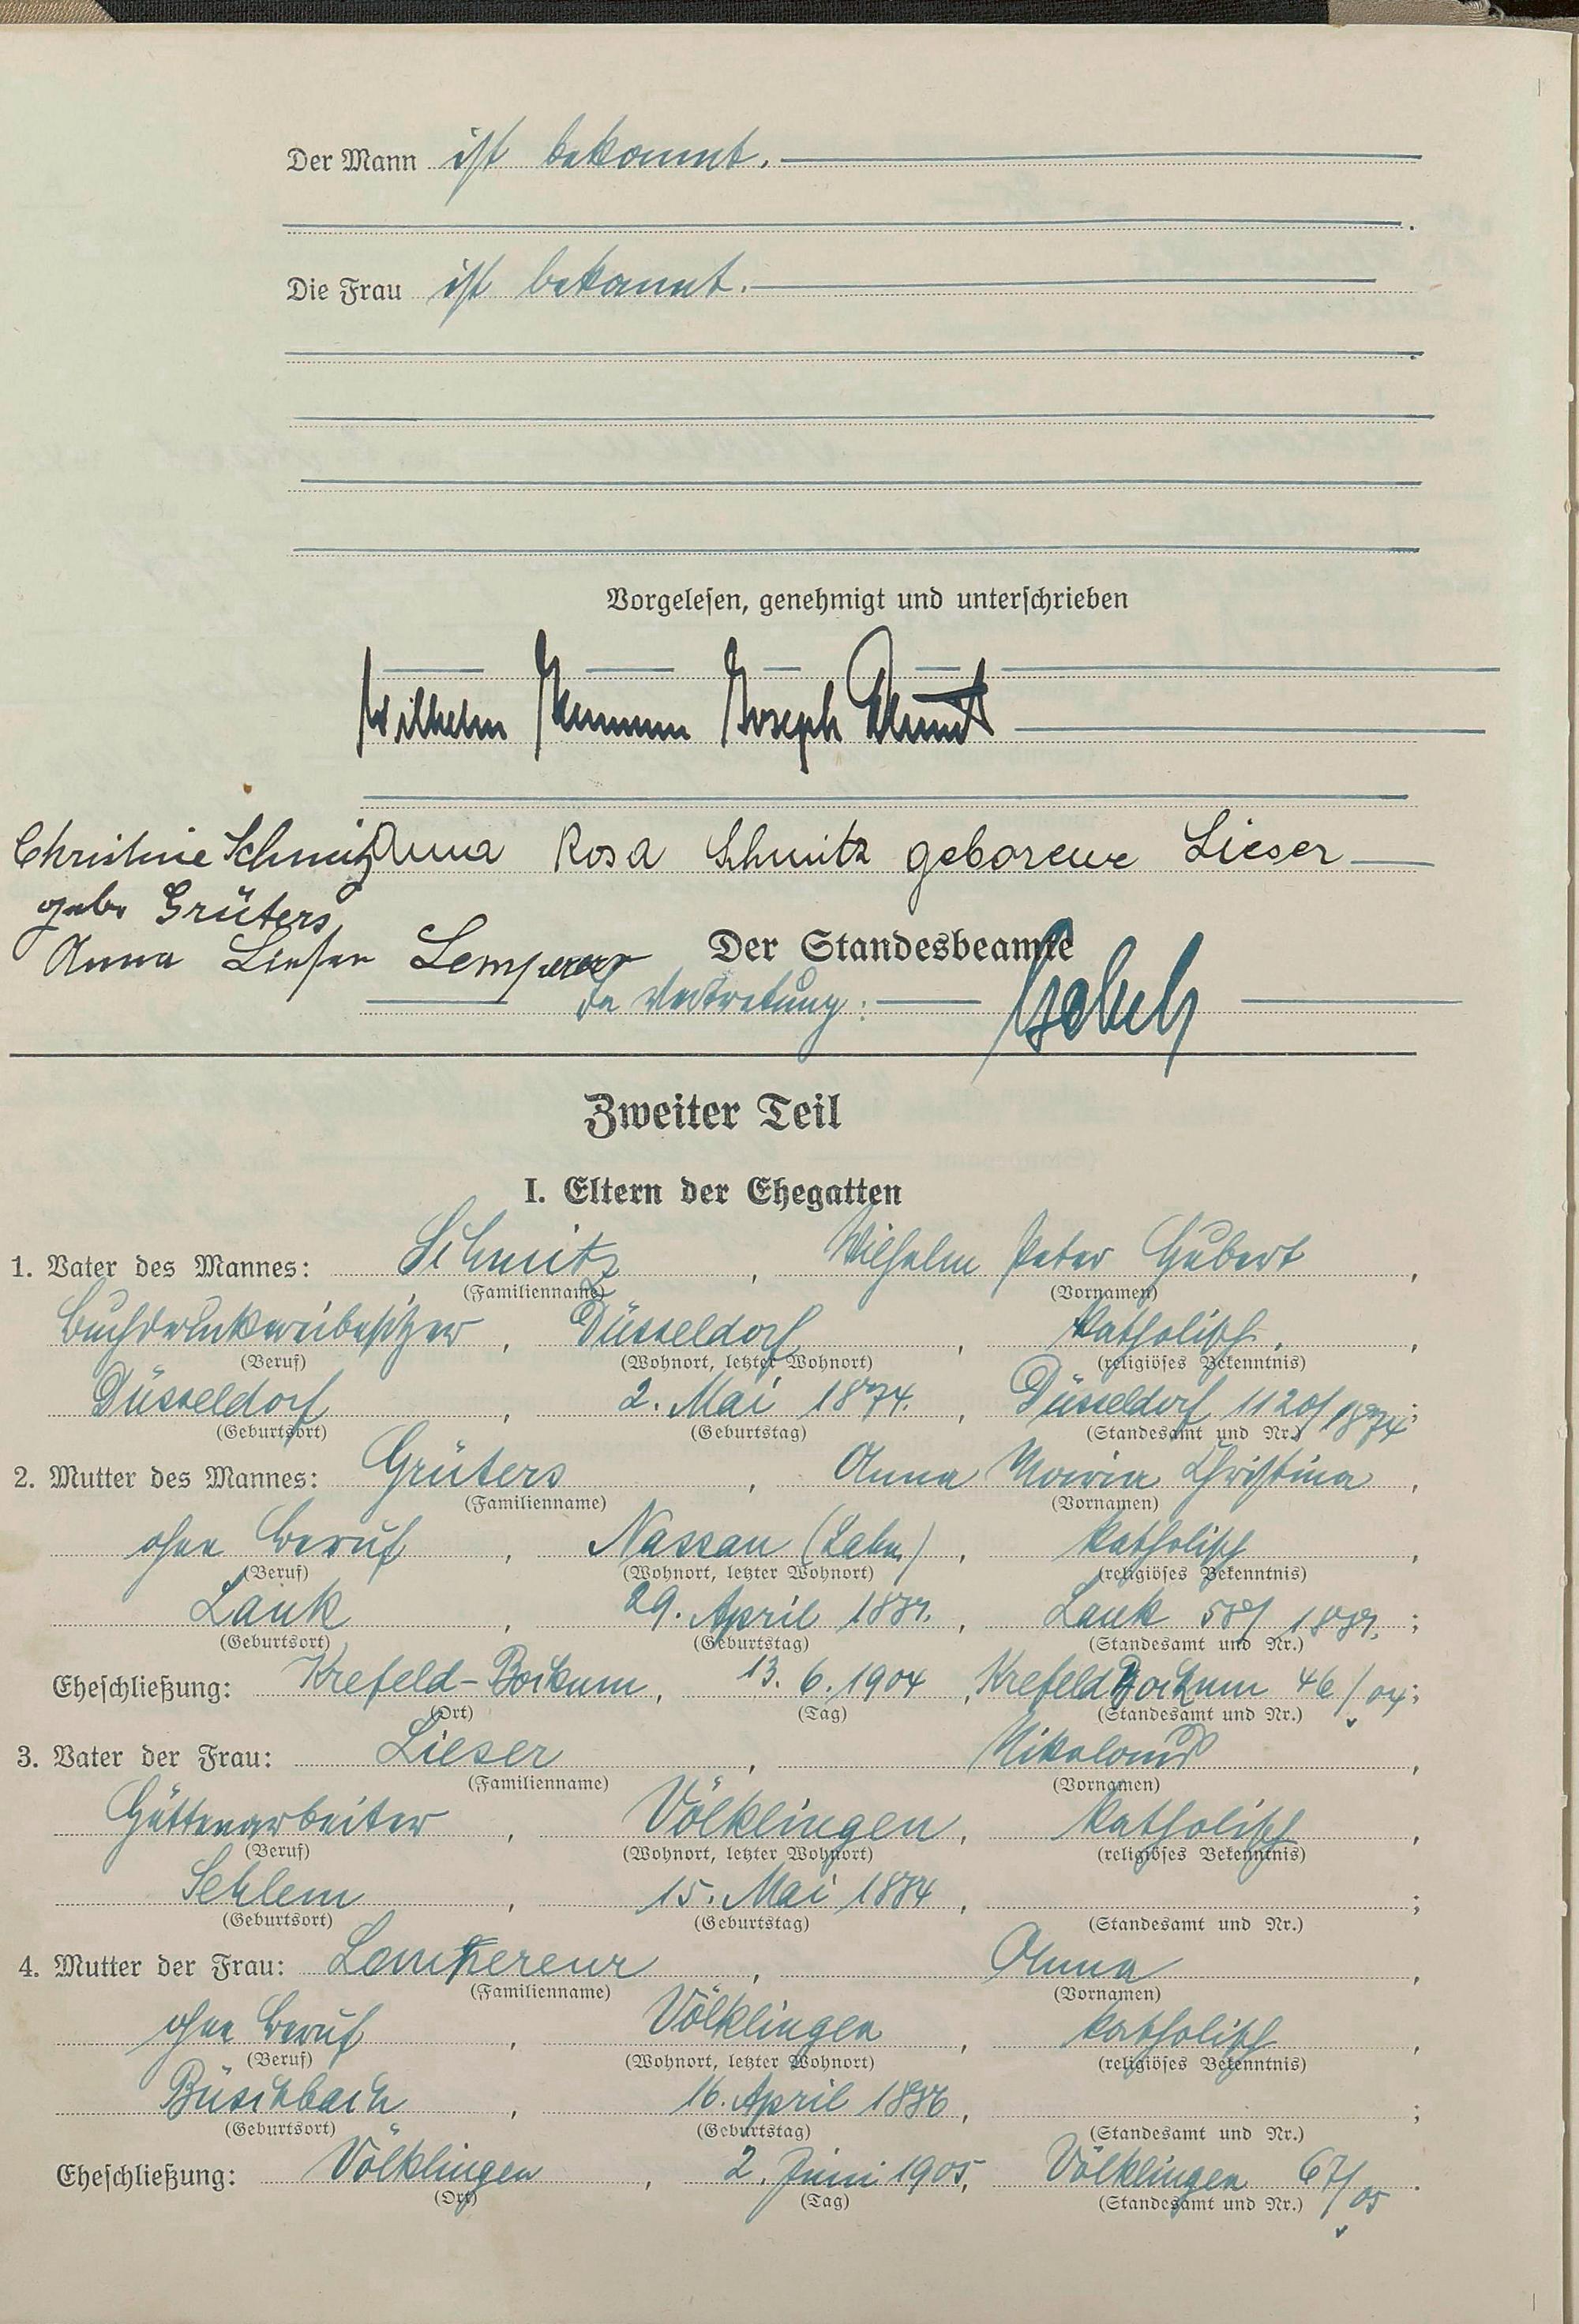 Der Mann ist bekannt.
Die Frau ist bekannt.
Vorgelesen, genehmigt und unterschrieben
Wilhelm Hermann Joseph Schmitz
Christine Schmitz Anna Rosa Schmitz geborene Lieser
geb. Grüters
Anna Lieser Lempereur Der Standesbeamte
In Vertretung:
Zweiter Teil
I. Eltern der Ehegatten
1. Vater des Mannes: Schmitz, Wilhelm Peter Hubert,
(Familienname) (Vornamen)
Buchdruckereibesitzer, Düsseldorf, katholisch,
(Beruf) (Wohnort, letzter Wohnort) (religiöses Bekenntnis)
Düsseldorf, 2. Mai 1874, Düsseldorf 1120/1874;
(Geburtsort) (Geburtstag) (Standesamt und Nr.)
2. Mutter des Mannes: Grüters, Anna Maria Christina,
(Familienname) (Vornamen)
ohne Beruf, Nassau (Lahn), katholisch,
(Beruf) (Wohnort, letzter Wohnort) (religiöses Bekenntnis)
Lank, 29. April, Lank;
(Geburtsort) (Geburtstag) (Standesamt und Nr.)
Eheschließung: Krefeld-Bockum, 13. 6. 1904, Krefeld Bockum 46/04;
(Ort) (Tag) (Standesamt und Nr.)
3. Vater der Frau: Lieser, Nikolaus,
(Familienname) (Vornamen)
Hüttenarbeiter, Völklingen, katholisch,
(Beruf) (Wohnort, letzter Wohnort) (religiöses Bekenntnis)
Sehlem, 15. Mai 1884,;
(Geburtsort) (Geburtstag) (Standesamt und Nr.)
4. Mutter der Frau: Lempereur, Anna,
(Familienname) (Vornamen)
ohne Beruf, Völklingen, katholisch,
(Beruf) (Wohnort, letzter Wohnort) (religiöses Bekenntnis)
Büschbach, 16. April 1886,;
(Geburtsort) (Geburtstag) (Standesamt und Nr.)
Eheschließung: Völklingen, 2. Juni 1905, Völklingen 67/05.
(Ort) (Tag) (Standesamt und Nr.)